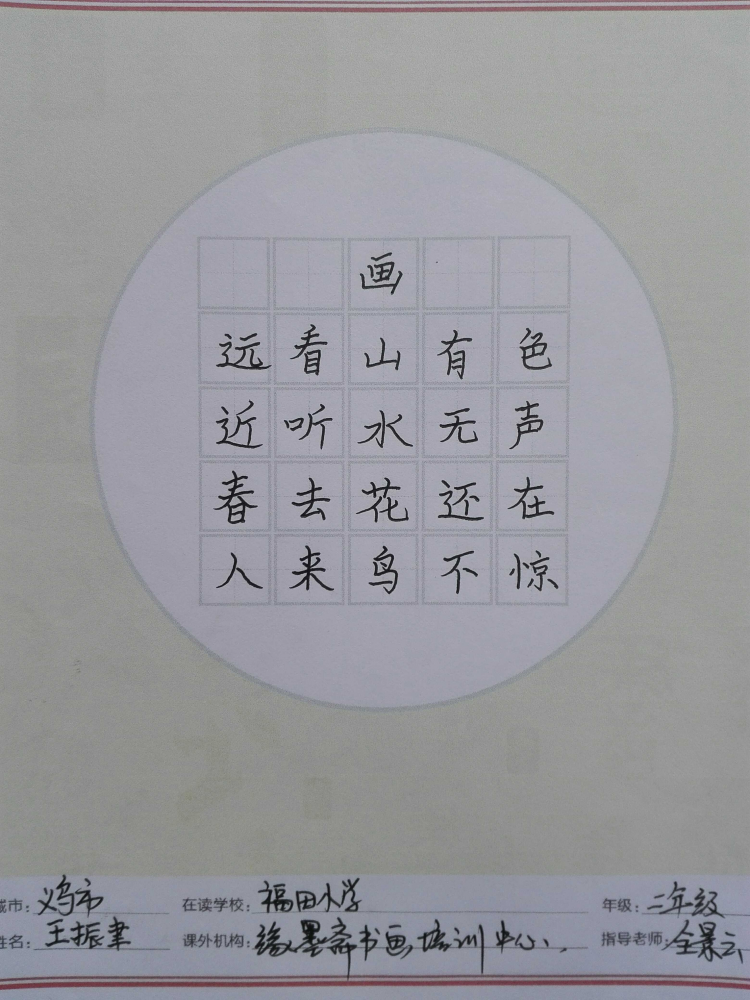 画
远看山有色
近听水无声
春去花还在
人来鸟不惊
城市：义乌市 在读学校：福田小学 年级：二年级
姓名：王振聿 课外机构：缘墨斋书画培训中心 指导老师：全景云